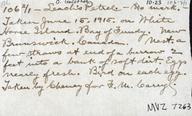 106a/1 - Leach's Petrel - No mark.
Taken June 15, 1915. on White
Horse Island, Bay of Fundy, New
Brunswick, Canada. Nest a
few straws at end of a burrow 2
feet into a bank of soft dirt. Eggs
nearly fresh. Bird on each egg.
Taken by Cheney for F. M. Carry
MVZ 7263